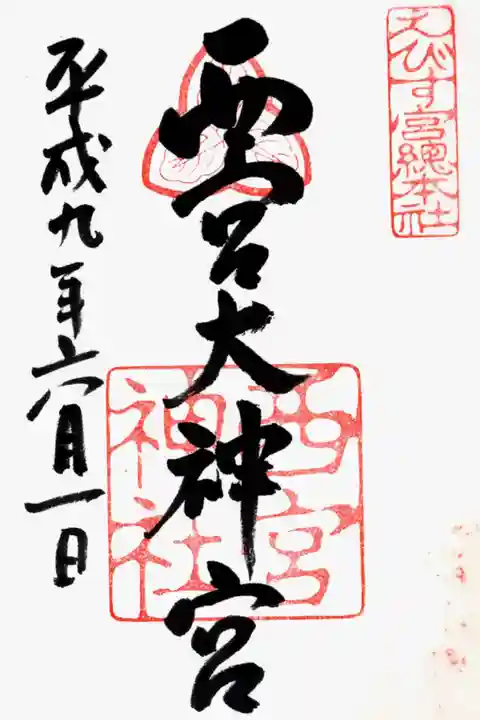 えびす宮總本社
西宮大神宮
西宮
神社
平成九年六月一日